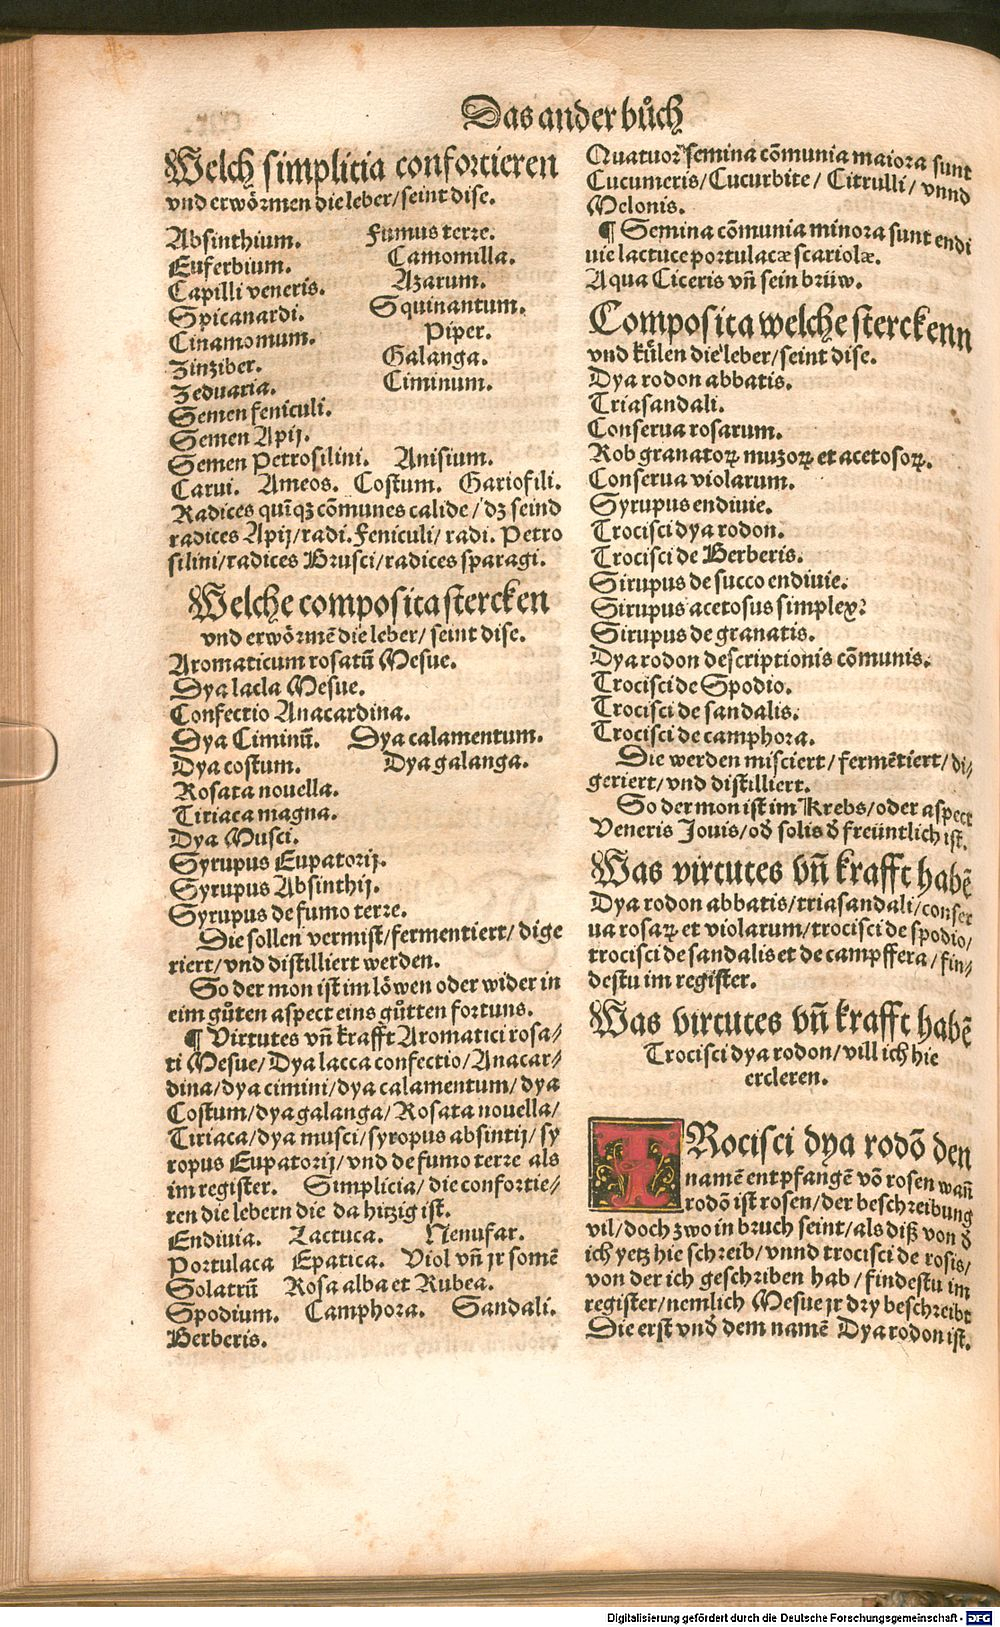 Das ander bůch
Welch simplicia confortieren
vnd erwörmen die leber/seint dise.
Absinthium. Fumus terre.
Euferbium. Camomilla.
Capilli veneris. Azarum.
Spicanardi. Squinantum.
Cinamomum. Piper.
Zinziber. Galanga.
Zeduaria. Ciminum.
Semen feniculi.
Semen Apij.
Semen Petrosilini. Anisium.
Carui. Ameos. Costum. Gariofili.
Radices quīqꝫ cōmunes calide/dꝫ seind
radices Apij/radi.Feniculi/radi. Petro
silini/radices Brusci/radices sparagi.
Welche composita stercken
vnd erwörmē die leber/seint dise.
Aromaticum rosatū Mesue.
Dya lacla Mesue.
Confectio Anacardina.
Dya Ciminū. Dya calamentum.
Dya costum. Dya galanga.
Rosata nouella.
Tiriaca magna.
Dya Musci.
Syrupus Eupatorij.
Syrupus Absinthij.
Syrupus de fumo terre.
Die sollen vermist/fermentiert/dige
riert/vnd distilliert werden.
So der mon ist im löwen oder wider in
eim gůten aspect eins gůtten fortuns.
¶ Virtutes vñ krafft Aromatici rosa/
ti Mesue/Dya lacca confectio/Anacar/
dina/dya cimini/dya calamentum/dya
Costum/dya galanga/Rosata nouella/
Tiriaca/dya musci/syropus absintij/sy
ropus Eupatorij/vnd de fumo terre als
im register. Simplicia/die confortie/
ren die lebern die da hitzig ist.
Endiuia. Lactuca. Nenufar.
Portulaca Epatica. Viol vñ jr somē
Solatrū Rosa alba et Rubea.
Spodium. Camphora. Sandali.
Berberis.
Quatuor semina cōmunia maiora sunt
Cucumeris/Cucurbite/Citrulli/vnnd
Melonis.
¶ Semina cōmunia minora sunt endi
uie lactuce portulacæ scariolæ.
Aqua Ciceris vñ sein brüw.
Composita welche sterckenn
vnd kůlen die leber/seint dise.
Dya rodon abbatis.
Triasandali.
Conserua rosarum.
Rob granatoꝝ muzoꝝ et acetosoꝝ.
Conserua violarum.
Syrupus endiuie.
Trocisci dya rodon.
Trocisci de Berberis.
Sirupus de succo endiuie.
Sirupus acetosus simplex:
Sirupus de granatis.
Dya rodon descriptionis cōmunis.
Trocisci de Spodio.
Trocisci de sandalis.
Trocisci de camphora.
Die werden misciert/fermētiert/di/
geriert/vnd distilliert.
So der mon ist im Krebs/oder aspect
Veneris Jouis/od̄ solis d̄ freüntlich ist.
Was virtutes vñ krafft habē
Dya rodon abbatis/triasandali/conser
ua rosaꝝ et violarum/trocisci de spodio/
trocisci de sandalis et de campffera/fin/
destu im register.
Was virtutes vñ krafft habē
Trocisci dya rodon/vill ich hie
ercleren.
TRocisci dya rodō den
namē entpfangē vō rosen wañ
rodō ist rosen/der beschreibung
vil/doch zwo in bruch seint/als diß von d̄
ich yetz hie schreib/vnnd trocisci de rosis/
von der ich geschriben hab/findestu im
register/nemlich Mesue jr dry beschreibt
Die erst vnd̄ dem namē Dya rodon ist.
Digitalisierung gefördert durch die Deutsche Forschungsgemeinschaft - DFG